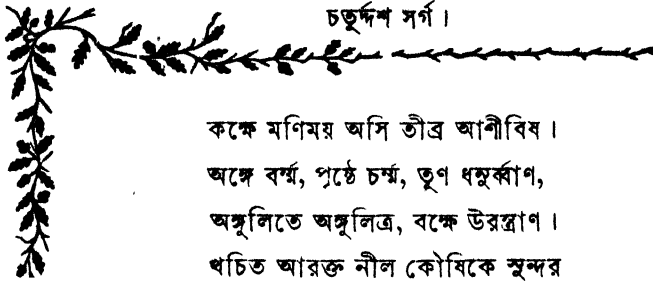 চতুর্দ্দশ সর্গ ।
কক্ষে মণিময় অসি তীব্র আশীবিষ ।
অঙ্গে বর্ম্ম, পৃষ্ঠে চর্ম্ম, তূণ ধনুর্ব্বাণ,
অঙ্গুলিতে অঙ্গুলিত্র, বক্ষে উরস্ত্রাণ ।
খচিত আরক্ত নীল কৌষিকে সুন্দর